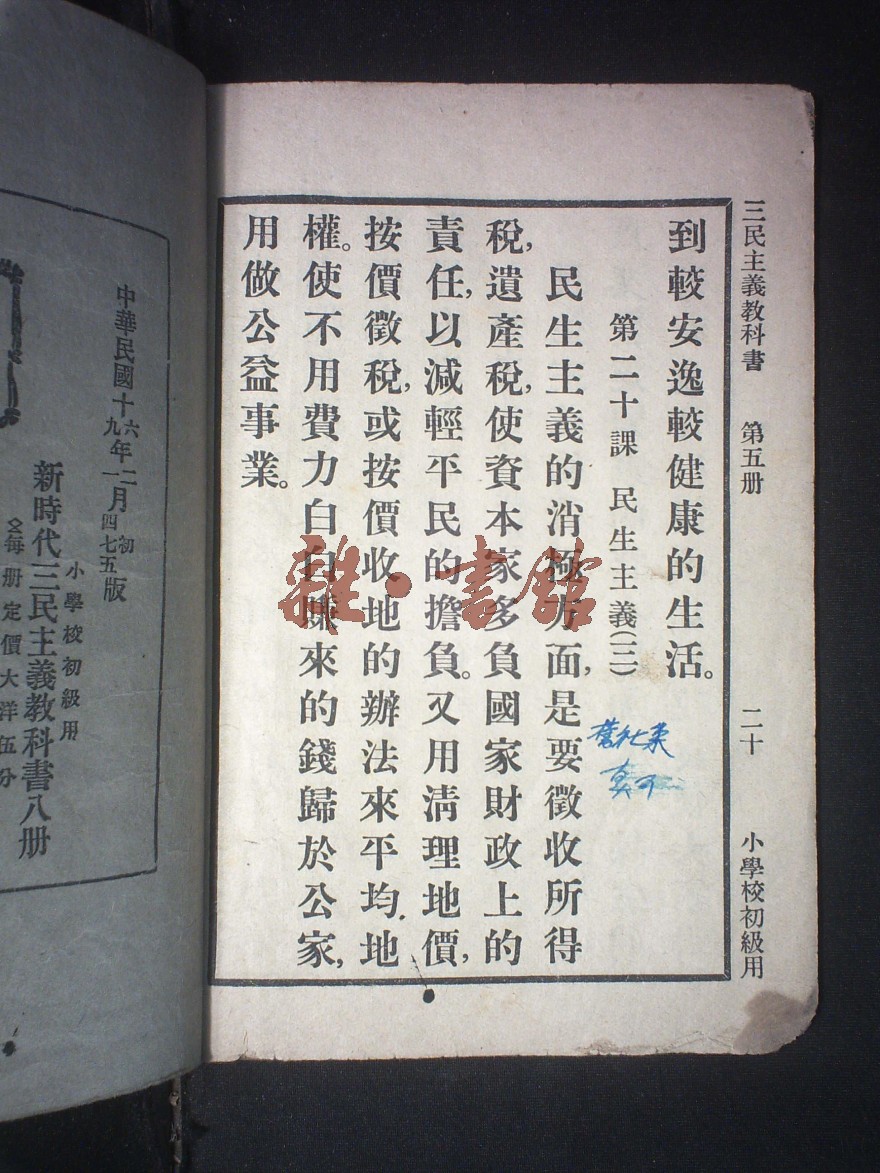 三民主義教科書 第五册 二十 小學校初級用
到較安逸較健康的生活。
第二十課 民生主義(三)
民生主義的消極方面，是要徵收所得
稅，遺產稅，使資本家多負國家財政上的
責任，以減輕平民的擔負。又用清理地價，
按價徵稅，或按價收地的辦法來平均地
權。使不用費力白白賺來的錢歸於公家，
用做公益事業。
雜·書館
中華民國十六年二月初版
九年一月四七五版
小學校初級用
新時代三民主義教科書八册
每册定價大洋伍分